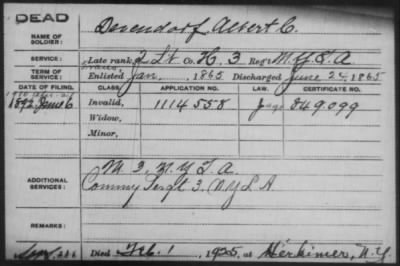 DEAD
NAME OF SOLDIER: Devendorf, Albert C.
SERVICE: Late rank 2 Lt Co. H, 3 Reg't N.Y. L A
TERM OF SERVICE: Enlisted Jan. 1865 Discharged June 24, 1865
DATE OF FILING. CLASS. APPLICATION NO. LAW. CERTIFICATE NO.
1892 June 6 Invalid, 1114558 849099
Widow,
Minor,
ADDITIONAL SERVICES: M 3. N. Y L. A.
Commy Sergt 3. N Y L A.
REMARKS:
Died Feb. 1 1925, at Herkimer, N.Y.